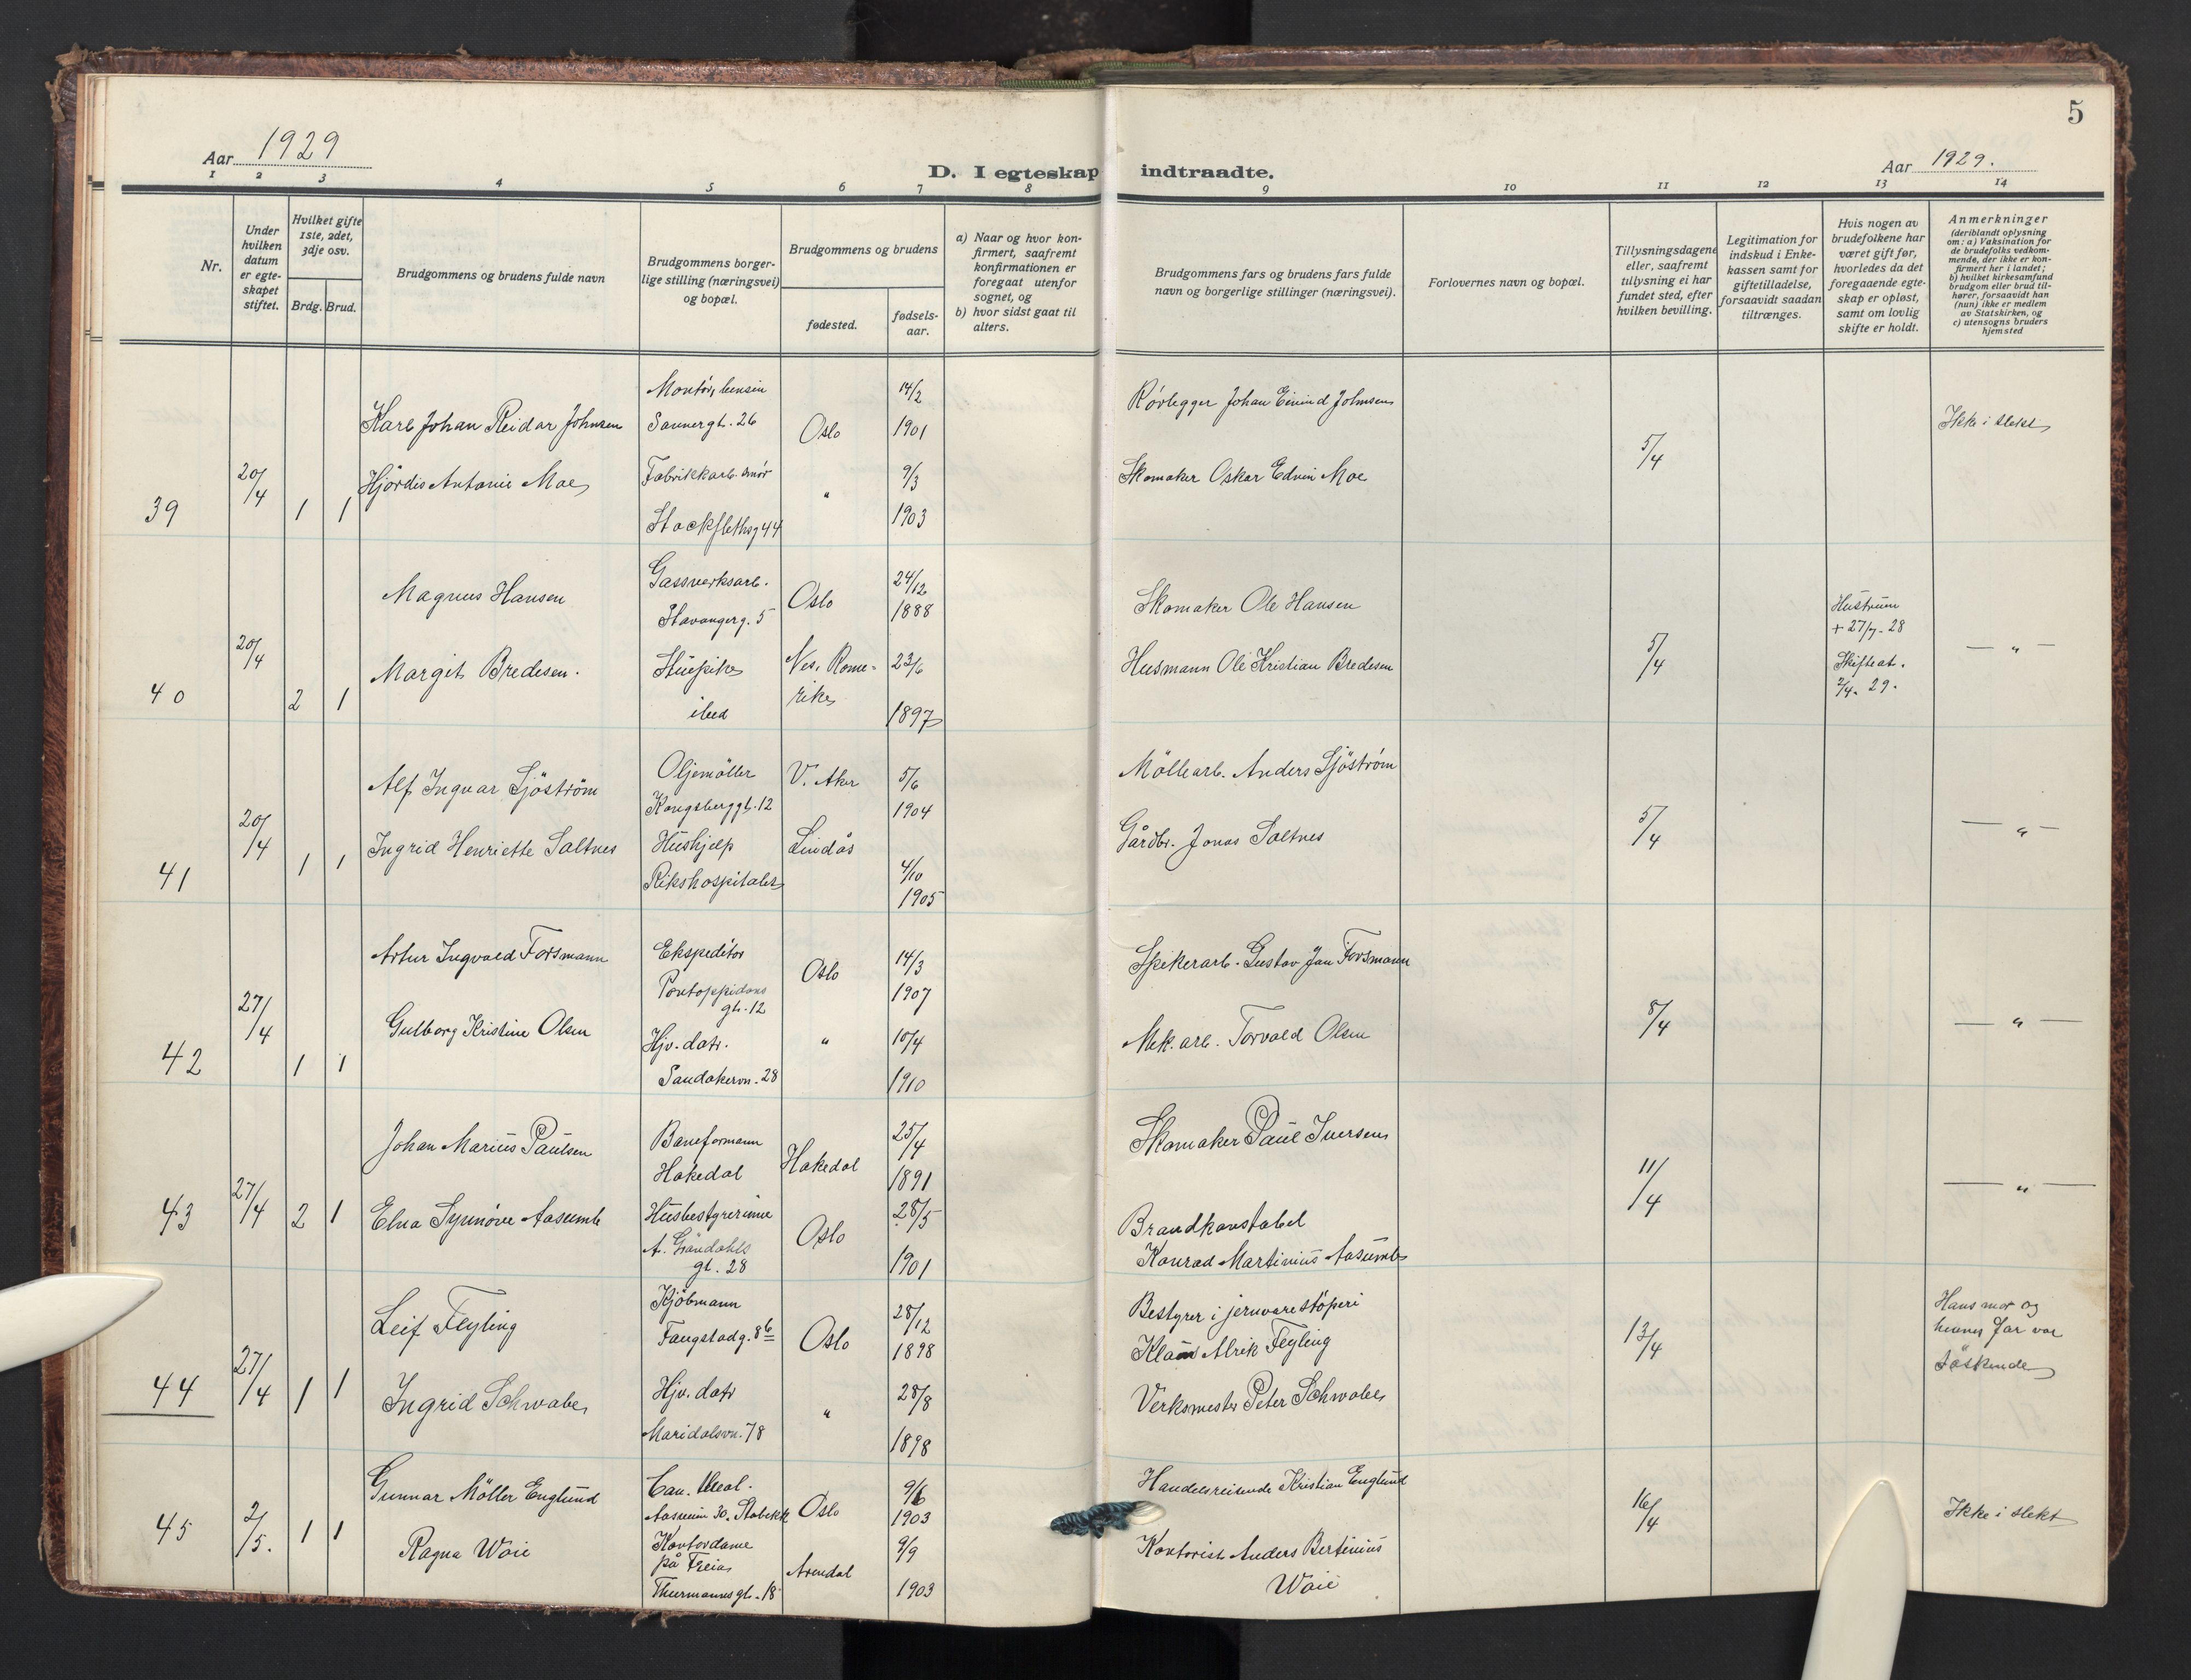 5
Aar 1929
D. I egteskap indtraadte.
Aar 1929.
1 2 3 4 5 6 7 8 9 10 11 12 13 14
Nr.
Under
hvilken
datum
er egte-
skapet
stiftet.
Hvilket gifte
1ste, 2det,
3dje osv.
Brdg. Brud.
Brudgommens og brudens fulde navn
Brudgommens borger-
lige stilling (næringsvei)
og bopæl.
Brudgommens og brudens
fødested.
fødsels-
aar.
a) Naar og hvor kon-
firmert, saafremt
konfirmationen er
foregaat utenfor
sognet, og
b) hvor sidst gaat til
alters.
Brudgommens fars og brudens fars fulde
navn og borgerlige stillinger (næringsvei).
Forlovernes navn og bopæl.
Tillysningsdagene
eller, saafremt
tillysning ei har
fundet sted, efter
hvilken bevilling.
Legitimation for
indskud i Enke-
kassen samt for
giftetilladelse,
forsaavidt saadan
tiltrænges.
Hvis nogen av
brudefolkene har
været gift før,
hvorledes da det
foregaaende egte-
skap er opløst,
samt om lovlig
skifte er holdt.
Anmerkninger
(deriblandt oplysning
om: a) Vaksination for
de brudefolks vedkom-
mende, der ikke er kon-
firmert her i landet;
b) hvilket kirkesamfund
brudgom eller brud til-
hører, forsaavidt han
(hun) ikke er medlem
av Statskirken, og
c) utensogns bruders
hjemsted
39
20/4
1 1
Karl Johan Reidar Johnsen
Montör, bensin
Sannergt. 26
Oslo
14/2
1901
Rörlegger Johan Eivind Johnsen
5/4
Ikke i slekt
Hjördis Antonie Moe
Fabrikkarb. smör
Stockflethsg 44
"
9/3
1903
Skomaker Oskar Edvin Moe
40
20/4
2 1
Magnus Hansen
Gassverksarb.
Stavangerg. 5
Oslo
24/12
1888
Skomaker Ole Hansen
5/4
Hustruen
+ 27/7-28
Skifteat.
2/4. 29.
— " —
Margit Bredesen.
Huspike
ibid
Nes. Rome-
rike
23/6
1897
Husmann Ole Kristian Bredesen
41
20/4
1 1
Alf Ingvar Sjöström
Oljemöller
Kongsberggt. 12
V. Aker
5/6
1904
Möllearb. Anders Sjöström
5/4
— " —
Ingrid Henriette Saltnes
Hushjelp
Rikshospitalet
Lindås
4/10
1905
Gårdbr. Jonas Saltnes
42
27/4
1 1
Artur Ingvald Forsmann
Ekspeditör
Pontoppidans
gt. 12
Oslo
14/3
1907
Spikerarb. Gustav Jan Forsmann
8/4
— " —
Gulborg Kristine Olsen
Hjv. datr.
Sandakervn. 28
"
10/4
1910
Mek. arb. Torvald Olsen
43
27/4
2 1
Johan Marius Paulsen
Baneformann
Hakedal
Hakedal
25/4
1891
Skomaker Paul Iversen
11/4
— " —
Elna Synnöve Aasumb
Husbestyrerinne
A. Grøndahls
gt. 28
Oslo
28/5
1901
Brandkonstabel
Konrad Martinius Aasumb
44
27/4
1 1
Leif Feyling
Kjöbmann
Faugstadg. 8b
Oslo
28/12
1898
Bestyrer i jernvarestöperi
Klaus Alrik Feyling
13/4
Hans mor og
hennes far var
söskende
Ingrid Schwabe
Hjv. datr
Maridalsvn. 78
"
28/8
1898
Verksmester Peter Schwabe
45
2/5.
1 1
Gunnar Möller Englund
Can. Meol.
Aasveien 30. Stabekk
Oslo
9/6
1903
Handelsreisende Kristian Englund
16/4
Ikke i slekt
Ragna Waie
Kontordame
på Freia
Thurmannsgt. 18
Arendal
9/9
1903
Kontorist Anders Bertinius
Waie